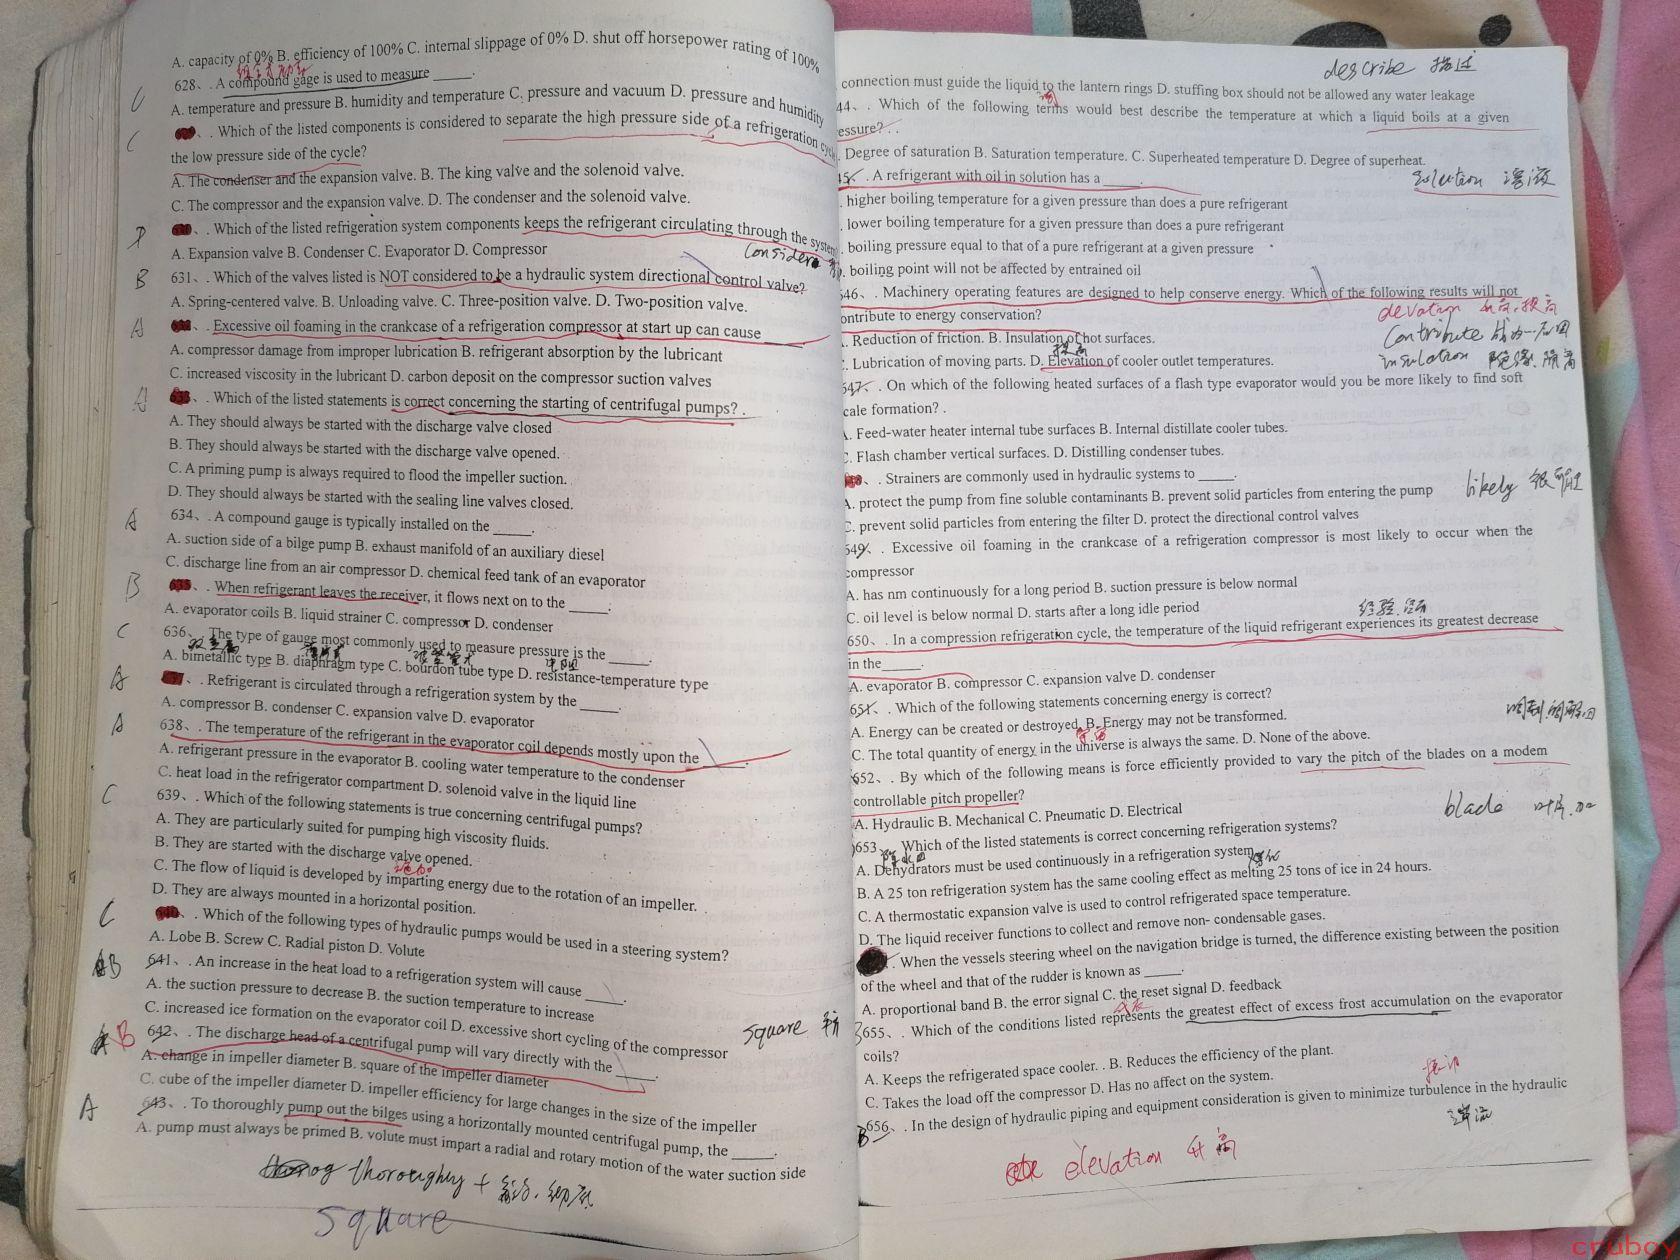 A. capacity of 0% B. efficiency of 100% C. internal slippage of 0% D. shut off horsepower rating of 100%
628、. A compound gage is used to measure _____.
C
A. temperature and pressure B. humidity and temperature C. pressure and vacuum D. pressure and humidity
C
、. Which of the listed components is considered to separate the high pressure side of a refrigeration cycle
the low pressure side of the cycle?
A. The condenser and the expansion valve. B. The king valve and the solenoid valve.
C. The compressor and the expansion valve. D. The condenser and the solenoid valve.
D
、. Which of the listed refrigeration system components keeps the refrigerant circulating through the system
A. Expansion valve B. Condenser C. Evaporator D. Compressor
Consider
B
631、. Which of the valves listed is NOT considered to be a hydraulic system directional control valve?
A. Spring-centered valve. B. Unloading valve. C. Three-position valve. D. Two-position valve.
A
632、. Excessive oil foaming in the crankcase of a refrigeration compressor at start up can cause _____
A. compressor damage from improper lubrication B. refrigerant absorption by the lubricant
C. increased viscosity in the lubricant D. carbon deposit on the compressor suction valves
A
633、. Which of the listed statements is correct concerning the starting of centrifugal pumps? .
A. They should always be started with the discharge valve closed
B. They should always be started with the discharge valve opened.
C. A priming pump is always required to flood the impeller suction.
D. They should always be started with the sealing line valves closed.
A
634、. A compound gauge is typically installed on the _____.
A. suction side of a bilge pump B. exhaust manifold of an auxiliary diesel
C. discharge line from an air compressor D. chemical feed tank of an evaporator
B
635、. When refrigerant leaves the receiver, it flows next on to the _____.
A. evaporator coils B. liquid strainer C. compressor D. condenser
C
636、. The type of gauge most commonly used to measure pressure is the _____.
A. bimetallic type B. diaphragm type C. bourdon tube type D. resistance-temperature type
A
637、. Refrigerant is circulated through a refrigeration system by the _____.
A. compressor B. condenser C. expansion valve D. evaporator
A
638、. The temperature of the refrigerant in the evaporator coil depends mostly upon the _____.
A. refrigerant pressure in the evaporator B. cooling water temperature to the condenser
C. heat load in the refrigerator compartment D. solenoid valve in the liquid line
C
639、. Which of the following statements is true concerning centrifugal pumps?
A. They are particularly suited for pumping high viscosity fluids.
B. They are started with the discharge valve opened.
C. The flow of liquid is developed by imparting energy due to the rotation of an impeller.
D. They are always mounted in a horizontal position.
C
640、. Which of the following types of hydraulic pumps would be used in a steering system?
A. Lobe B. Screw C. Radial piston D. Volute
B
641、. An increase in the heat load to a refrigeration system will cause _____.
A. the suction pressure to decrease B. the suction temperature to increase
C. increased ice formation on the evaporator coil D. excessive short cycling of the compressor
square
B
642、. The discharge head of a centrifugal pump will vary directly with the _____.
A. change in impeller diameter B. square of the impeller diameter
C. cube of the impeller diameter D. impeller efficiency for large changes in the size of the impeller
A
643、. To thoroughly pump out the bilges using a horizontally mounted centrifugal pump, the _____.
A. pump must always be primed B. volute must impart a radial and rotary motion of the water suction side
square
describe 描述
connection must guide the liquid to the lantern rings D. stuffing box should not be allowed any water leakage
44、. Which of the following terms would best describe the temperature at which a liquid boils at a given
essure? . .
. Degree of saturation B. Saturation temperature. C. Superheated temperature D. Degree of superheat.
solution 溶液
45、. A refrigerant with oil in solution has a _____.
. higher boiling temperature for a given pressure than does a pure refrigerant
. lower boiling temperature for a given pressure than does a pure refrigerant
. boiling pressure equal to that of a pure refrigerant at a given pressure
. boiling point will not be affected by entrained oil
646、. Machinery operating features are designed to help conserve energy. Which of the following results will not
ontribute to energy conservation?
Contribute
. Reduction of friction. B. Insulation of hot surfaces.
提高
insulation
. Lubrication of moving parts. D. Elevation of cooler outlet temperatures.
647、. On which of the following heated surfaces of a flash type evaporator would you be more likely to find soft
cale formation? .
A. Feed-water heater internal tube surfaces B. Internal distillate cooler tubes.
C. Flash chamber vertical surfaces. D. Distilling condenser tubes.
、. Strainers are commonly used in hydraulic systems to _____.
likely
A. protect the pump from fine soluble contaminants B. prevent solid particles from entering the pump
C. prevent solid particles from entering the filter D. protect the directional control valves
649、. Excessive oil foaming in the crankcase of a refrigeration compressor is most likely to occur when the
compressor
A. has nm continuously for a long period B. suction pressure is below normal
C. oil level is below normal D. starts after a long idle period
650、. In a compression refrigeration cycle, the temperature of the liquid refrigerant experiences its greatest decrease
in the_____.
A. evaporator B. compressor C. expansion valve D. condenser
651、. Which of the following statements concerning energy is correct?
A. Energy can be created or destroyed. B. Energy may not be transformed.
C. The total quantity of energy in the universe is always the same. D. None of the above.
652、. By which of the following means is force efficiently provided to vary the pitch of the blades on a modem
controllable pitch propeller?
blade
A. Hydraulic B. Mechanical C. Pneumatic D. Electrical
653、. Which of the listed statements is correct concerning refrigeration systems?
A. Dehydrators must be used continuously in a refrigeration system
B. A 25 ton refrigeration system has the same cooling effect as melting 25 tons of ice in 24 hours.
C. A thermostatic expansion valve is used to control refrigerated space temperature.
D. The liquid receiver functions to collect and remove non- condensable gases.
. When the vessels steering wheel on the navigation bridge is turned, the difference existing between the position
of the wheel and that of the rudder is known as _____.
A. proportional band B. the error signal C. the reset signal D. feedback
655、. Which of the conditions listed represents the greatest effect of excess frost accumulation on the evaporator
coils?
A. Keeps the refrigerated space cooler. . B. Reduces the efficiency of the plant.
C. Takes the load off the compressor D. Has no affect on the system.
B
656、. In the design of hydraulic piping and equipment consideration is given to minimize turbulence in the hydraulic
elevation 升高
cruboy